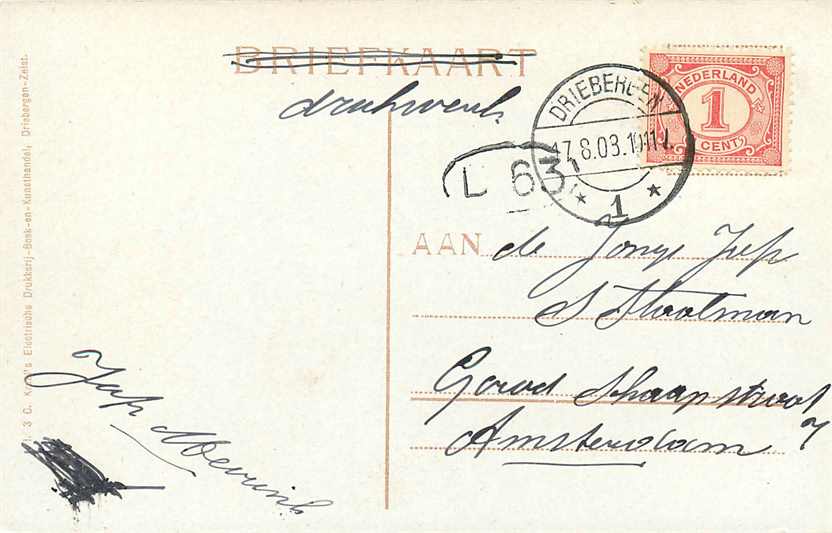 BRIEFKAART
drukwerk
DRIEBERGEN
17.8.08.10-11V.
1
NEDERLAND
1
CENT
L 63
AAN de Jonge Jufr
S Stootman
Goud
Amsterdam
Jufr Meurink
3 C. Electrische Drukkerij-Boek-en-Kunsthandel, Driebergen-Zeist.